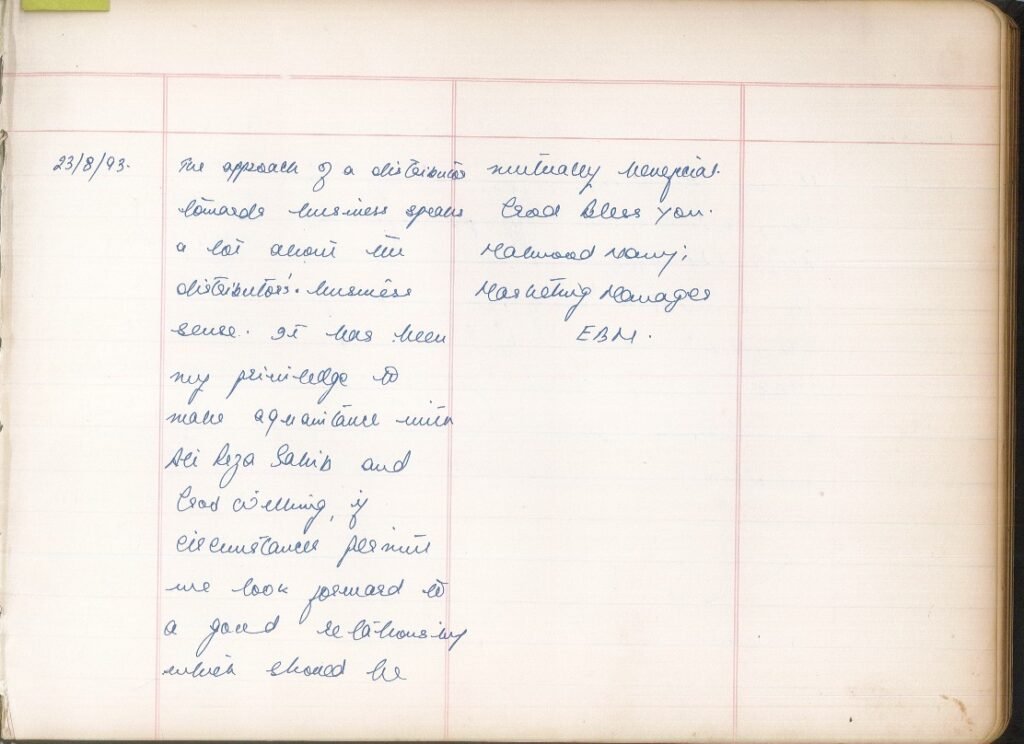 23/8/93.
The approach of a distributor
towards business speaks
a lot about the
distributors'. business
sense. It has been
my priviledge to
make aquaintance with
Ali Reza Sahib and
God willing, if
circumstances permit
we look forward to
a good relationship
which should be
mutually beneficial.
God Bless You.
Mahmood
Marketing Manager
EBM.